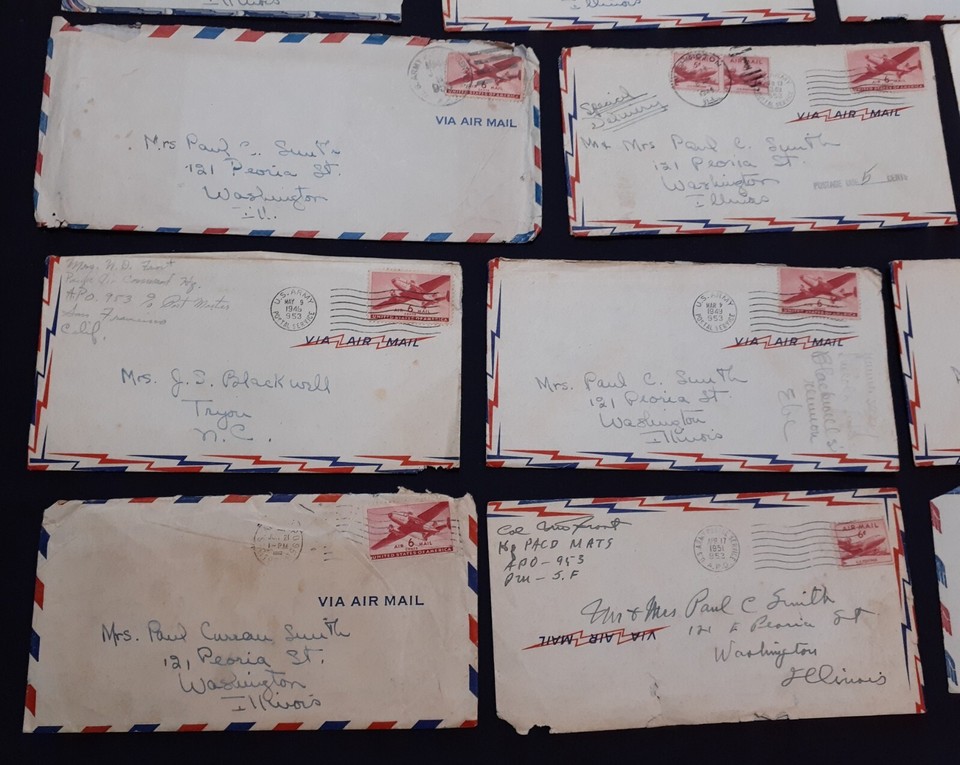 Illinois
Illinois
U.S. ARMY
6
AIR MAIL
UNITED STATES OF AMERICA
VIA AIR MAIL
Mrs Paul C. Smith
121 Peoria St.
Washington
Ill.
AIR MAIL
6
Special
Delivery
VIA AIR MAIL
Mr Mrs Paul C. Smith
121 Peoria St.
Washington
Illinois
POSTAGE DUE 5 CENTS
A.P.O. 953 % Post Master
San Francisco
Calif.
U.S. ARMY
MAY 9
1949
953
POSTAL SERVICE
AIR 6 MAIL
UNITED STATES OF AMERICA
VIA AIR MAIL
Mrs. J. S. Blackwell
Tryon
N.C.
U.S. ARMY
1949
953
POSTAL SERVICE
6
VIA AIR MAIL
Mrs. Paul C. Smith
121 Peoria St.
Washington
Illinois
Blackwell's
reunion
Etc
AIR 6 MAIL
UNITED STATES OF AMERICA
VIA AIR MAIL
Mrs. Paul Smith
121 Peoria St.
Washington
Illinois
Col
Hq PACD MATS
APO - 953
PM - S.F
17
1951
953
A.P.O.
AIR MAIL
6¢
Mr & Mrs Paul C Smith
121 E Peoria St
Washington
Illinois
VIA AIR MAIL